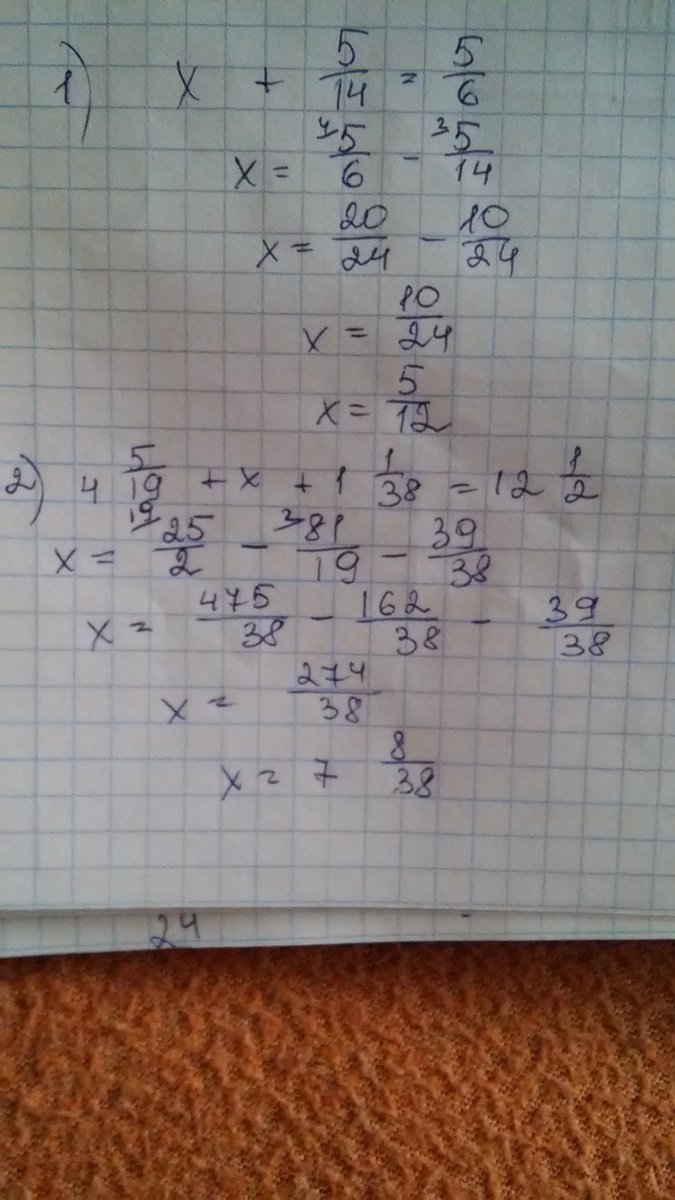 1) x + 5/14 = 5/6
x = ⁴5/6 - ³5/14
x = 20/24 - 10/24
x = 10/24
x = 5/12
2) 4 5/19 + x + 1 1/38 = 12 1/2
x = ¹⁹25/2 - ²81/19 - 39/38
x = 475/38 - 162/38 - 39/38
x = 274/38
x = 7 8/38
24